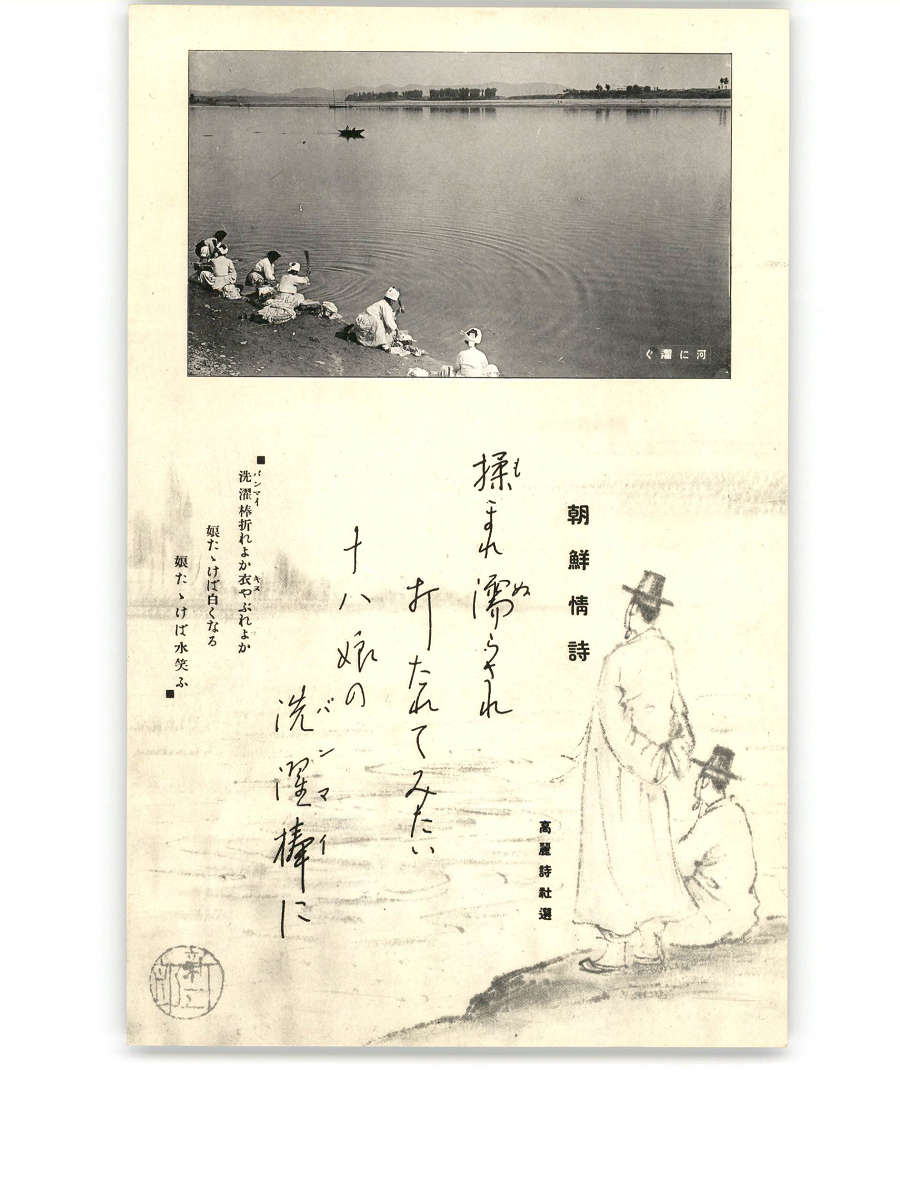 河に濯ぐ
朝鮮情詩
高麗詩社選
揉まれ濡らされ
打たれてみたい
十八娘の
洗濯棒に
■洗濯棒折れよか衣やぶれよか
娘たゝけば白くなる
娘たゝけば水笑ふ■
も
ぬ
バンマイ
パンマイ
キヌ